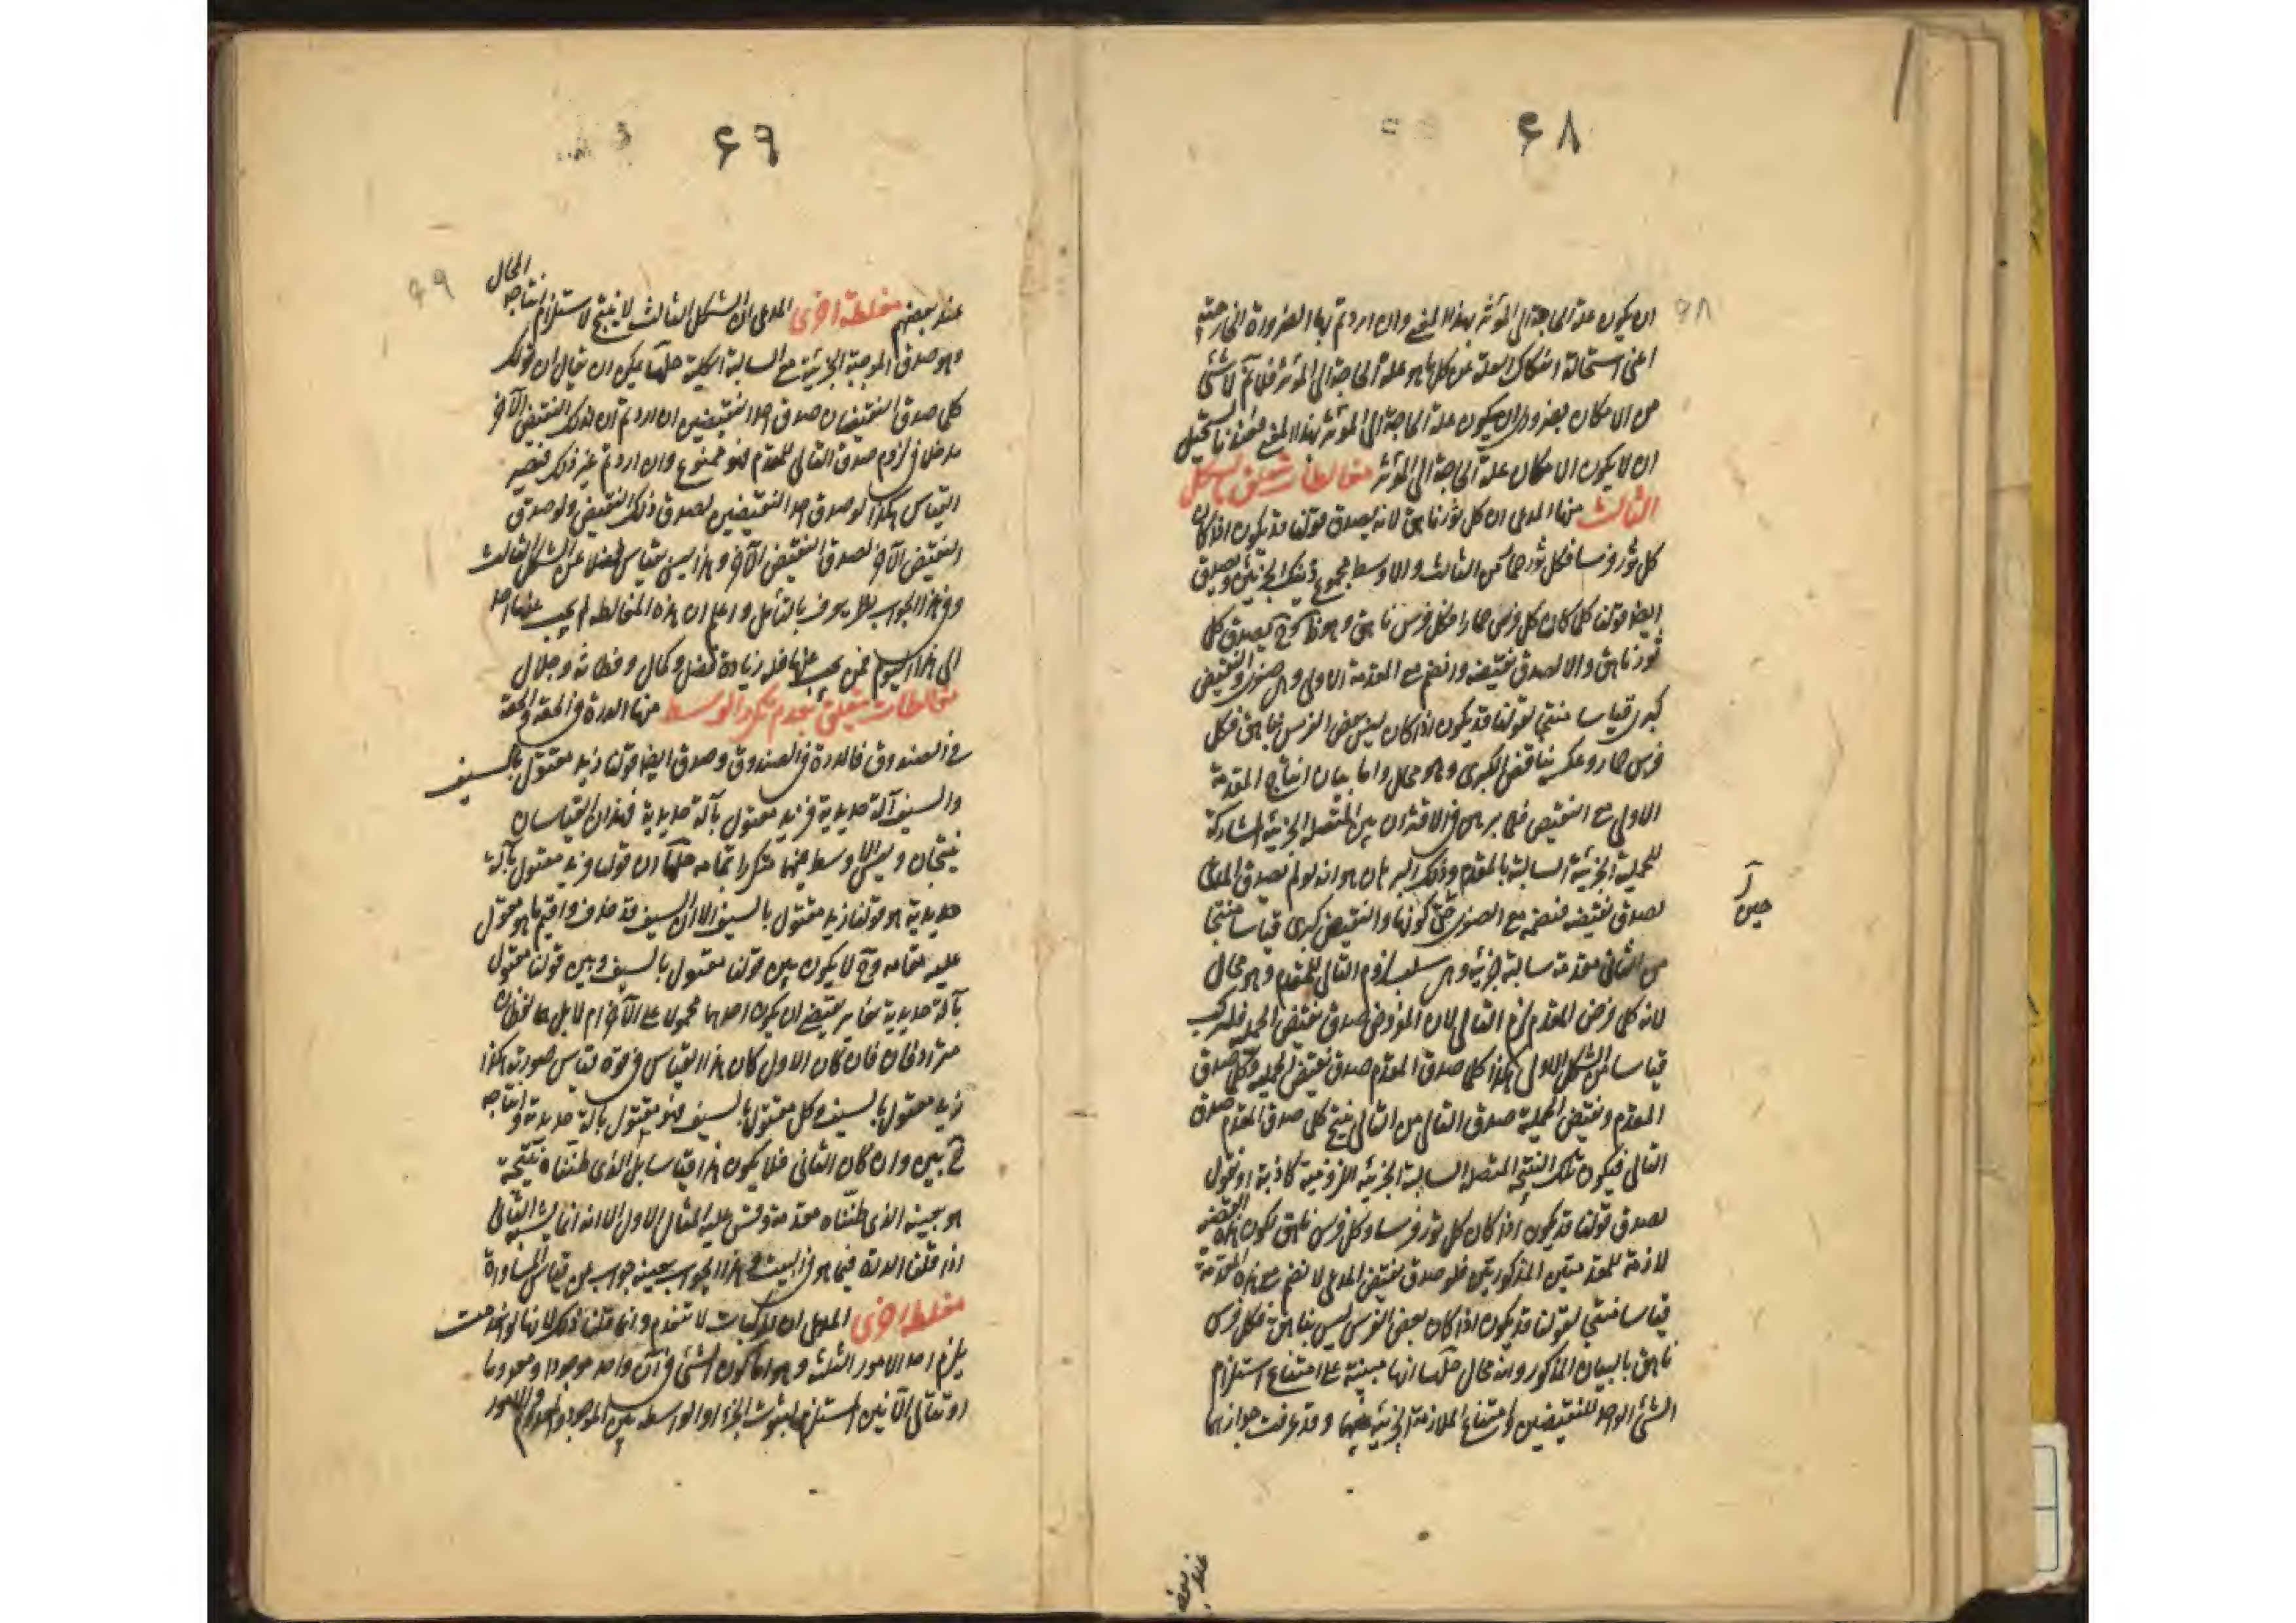 ٦٨
ان يكون علة الحاجة الى المؤثر بهذا المعنى وان اردتم بها الضرورة الخارجية
اعنى استحالة انفكاك العلة عن كل ما هو علة الحاجة الى المؤثر فلا تم لا شئ
من الامكان بضرورى ان يكون علة الحاجة الى المؤثر بهذا المعنى
ان لا يكون الامكان علة الحاجة الى المؤثر مغالطات تتعلق بالشكل
الثالث منها المدعى ان كل ثور ناهق لانه يصدق قولنا قد يكون اذا كان
كل ثور فرسا فكل ثور حمار من الثالث والاوسط مجموع ويصدق
ايضا قولنا كلما كان كل فرس حمارا فكل فرس ناهق وهو ظ وح يصدق كل
ثور ناهق والا لصدق نقيضه وانضم مع المقدمة الاولى وهى صغرى والنقيض
كبرى قياسا منتجا لقولنا قد يكون اذا كان ليس بعض الفرس بناهق فكل
فرس حمار وعكسه يناقض الكبرى وهو محال واما بيان انتاج المقدمة
الاولى مع النقيض فلما برهن فى الاقتران بين المتصلة الجزئية المشاركة
للحملية الجزئية السالبة بالمقدم وذلك البرهان هو انه لو لم يصدق المدعى
لصدق نقيضه فنضمه مع الصغرى حتى كونها والنقيض كبرى قياسا منتجا
من الثانى مقدمة سالبة جزئية وهى سلب لزوم التالى للمقدم وهو محال
لانه كلما فرض المقدم لزم التالى لان المفروض صدق نقيض الحملية فلنركب
قياسا من الشكل الاول هكذا كلما صدق المقدم صدق نقيض الحملية وكلما صدق
المقدم ونقيض الحملية صدق التالى من الثانى ينتج كلما صدق المقدم صدق
التالى فيكون تلك النتيجة المتصلة السالبة الجزئية اللزومية كاذبة او نقول
لصدق قولنا قد يكون اذا كان كل ثور فرسا وكل فرس ناهق لكون هذه القضية
لازمة للمقدمتين المذكورتين فلو صدق نقيض المدعى لانضم مع هذه المقدمة
قياسا منتجا لقولنا قد يكون اذا كان بعض الفرس ليس بناهق فكل فرس
ناهق بالبيان المذكور وانه محال حلها انها مبنية على امتناع استلزام
الشئ الواحد للنقيضين وامتناع الملازمة الجزئية بينهما وقد عرفت جوازهما
عند بعضهم
٦٩
عند بعضهم مغلطة اخرى المدعى ان الشكل الثالث لا ينتج لاستلزام انتاجه المحال
وهو صدق الموجبة الجزئية مع السالبة الكلية حلها يمكن ان يقال ان قولك
كلما صدق النقيضان صدق احد النقيضين ان اردتم ان لذلك النقيض الآخر
مدخلا فى لزوم صدق التالى للمقدم فهو ممنوع وان اردتم غير ذلك فيصير
القياس هكذا لو صدق احد النقيضين لصدق ذلك النقيض ولو صدق
النقيض الآخر لصدق النقيض الآخر وهذا ليس بقياس فضلا عن الشكل الثالث
وفى هذا الجواب نظر يعرف بالتأمل واعلم ان هذه المغالطه لم يجب عنها احد
الى هذا اليوم فمن يجب عنها فله زيادة فضل وكمال وفطانة وجلال
مغالطات تتعلق بعدم تكرر الوسط منها الدرة فى الحقة والحقة
فى الصندوق فالدرة فى الصندوق وصدق ايضا قولنا زيد مقتول بالسيف
والسيف آلة حديدية فزيد مقتول بآلة حديدية فهذان القياسان
ينتجان وليس الاوسط فيهما متكررا بتمامه حلها ان قولنا فزيد مقتول بآلة
حديدية هو قولنا زيد مقتول بالسيف الا ان السيف قد حذف واقيم ما هو محمول
عليه مقامه وح لا يكون بين قولنا مقتول بالسيف وبين قولنا مقتول
بآلة حديدية تغاير يقتضى ان يكون احدهما محمولا على الآخر ام لا بل هما لفظان
مترادفان فان كان الاول كان هذا القياس فى قوة قياس صورته هكذا
زيد مقتول بالسيف وكل مقتول بالسيف فهو مقتول بآلة حديدية وانتاجه
ح بين وان كان الثانى فلا يكون هذا قياسا بل الذى ظنناه نتيجة
هو بعينه الذى ظنناه مقدمة وقس عليه المثال الاول الا انه انما يشبه الثانى
اذا قلنا الدرة فيما هو فى البيت وهذا الجواب بعينه جواب عن قياس المساواة
مغلطة اخرى المدعى ان المركبات لا تنعدم وانما قلنا ذلك لانها لو انعدمت
يلزم احد الامور الثلثة وهو اما كون الشئ فى آن واحد موجودا ومعدوما
او تتالى الآنين المستلزم لثبوت الجزء او الواسطة بين الموجود والمعدوم